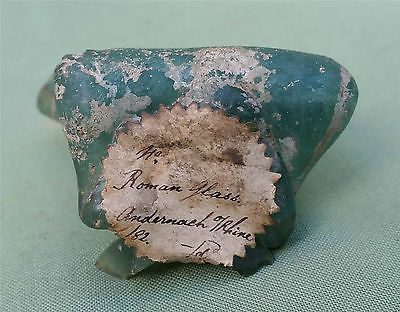 No.
Roman Glass.
Andernach o/Rhine
/82.